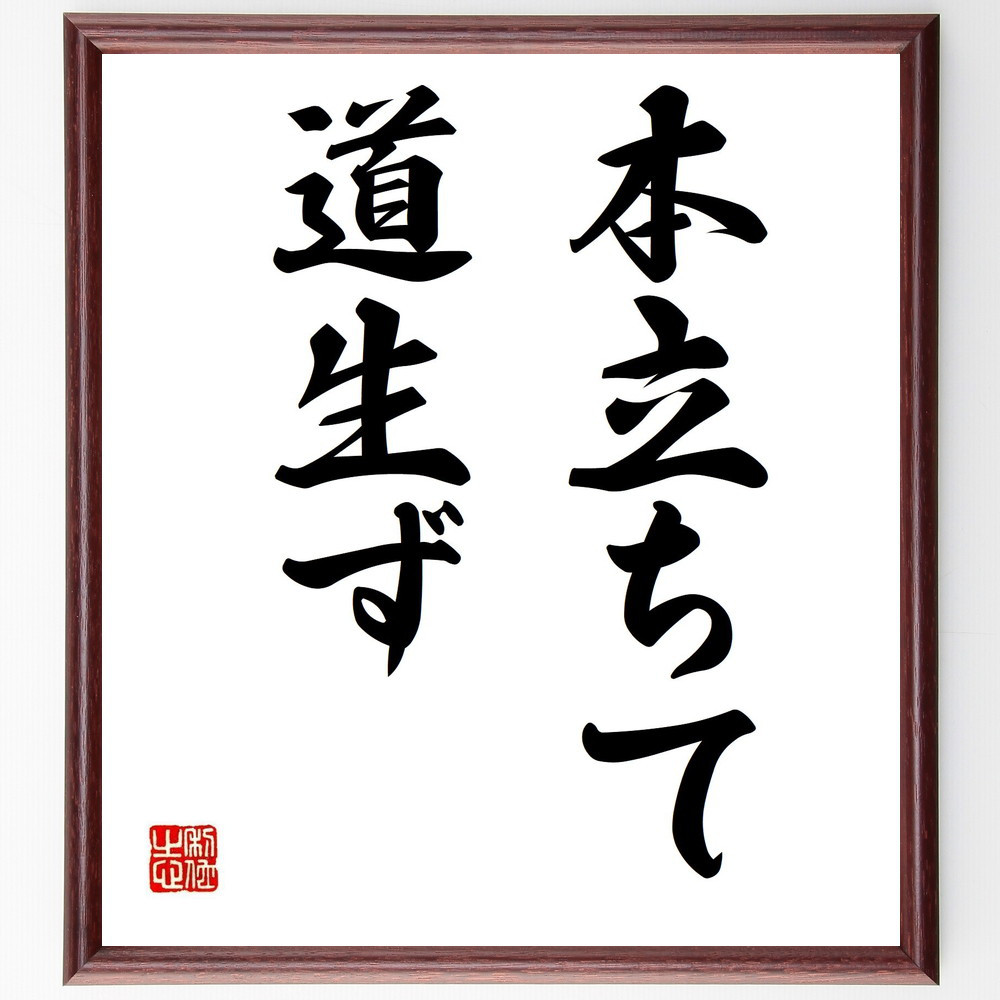 本立ちて
道生ず